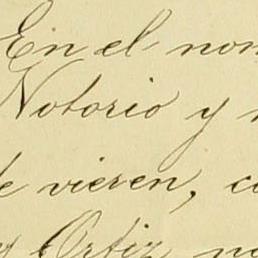 En el nom
Notorio y
de vieren, co
y Ortiz, no